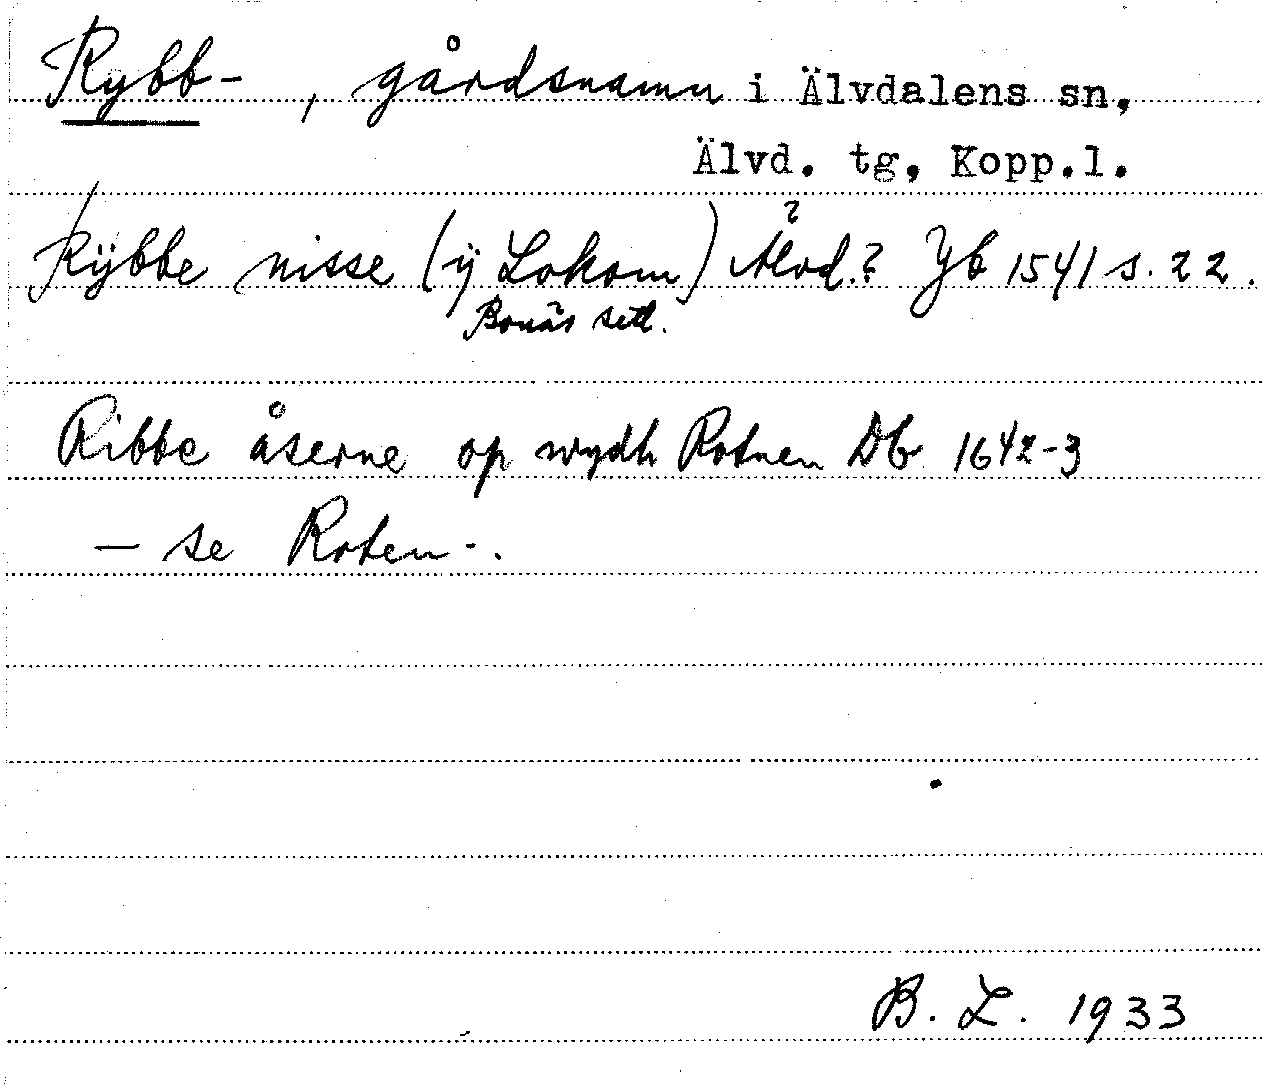 Rybb-, gårdsnamn i Älvdalens sn,
Älvd. tg, Kopp.l.
Rÿbbe nisse (ÿ Lokom) Älvd.? Jb 1541 s. 22.
Bonäs sett.
Ribbe åserne op wydh Rotnen Db 1642-3
— se Roten-.
B. L. 1933